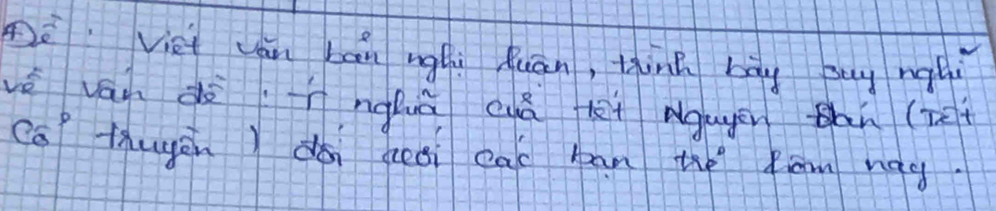 Đề: Viết văn bản nghị luận, trình bày suy nghĩ
về vấn đề: Ý nghĩa của tết Nguyên Đán (Tết
Cổ truyền) đối với các bạn trẻ hôm nay.